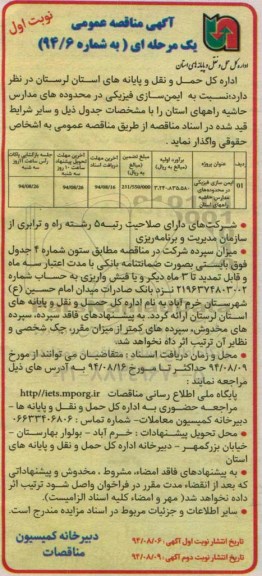 نوبت اول
آگهی مناقصه عمومی
یک مرحله ای ( به شماره ۹۴/۶)
اداره کل حمل و نقل و پایانه های استان
اداره کل حمل و نقل و پایانه های استان لرستان در نظر
دارد؛نسبت به ایمن‌سازی فیزیکی در محدوده های مدارس
حاشیه راههای استان را با مشخصات جدول ذیل و سایر شرایط
قید شده در اسناد مناقصه از طریق مناقصه عمومی به اشخاص
حقوقی واگذار نماید.
ردیف عنوان پروژه برآورد اولیه (مبالغ به ریال) مبلغ تضمین (مبالغ به ریال) آخرین مهلت دریافت اسناد آخرین مهلت تحویل پیشنهاد ساعت ۱۰ روز سه شنبه جلسه بازگشایی پاکات رأس ساعت ۱۱ روز سه شنبه
01 ایمن سازی فیزیکی در محدوده‌های مدارس حاشیه راههای استان 231/550/000 94/08/16 94/08/26 94/08/26
شرکت‌های دارای صلاحیت رتبه ۵ رشته راه و ترابری از
سازمان مدیریت و برنامه‌ریزی
میزان سپرده شرکت در مناقصه مطابق ستون شماره ۴ جدول
فوق بایستی بصورت ضمانتنامه بانکی با مدت اعتبار سه ماه
و قابل تمدید تا ۳ ماه دیگر و یا فیش واریزی به حساب شماره
۲۱۹۶۳۷۴۸۰۳۰۰۲ نزد بانک صادرات میدان امام حسین (ع)
شهرستان خرم آباد به نام اداره کل حمل و نقل و پایانه های
استان لرستان ارائه گردد. به پیشنهادهای فاقد سپرده، سپرده
های مخدوش، سپرده های کمتر از میزان مقرر، چک شخصی و
نظایر آن ترتیب اثر داده نخواهد شد.
محل و زمان دریافت اسناد : متقاضیان می توانند از مورخ
۹۴/۰۸/۰۹ حداکثر تا مورخ ۹۴/۰۸/۱۶ به آدرس های ذیل
مراجعه نمایند :
پایگاه ملی اطلاع رسانی مناقصات http//iets.mporg.ir
مراجعه حضوری به اداره کل حمل و نقل و پایانه ها -
دبیرخانه کمیسیون معاملات- شماره تماس : ۰۶۶۳۳۴۰۶۸۰۶
محل تحویل پیشنهادات : خرم آباد - بولوار بهارستان -
خیابان بزرگمهر - دبیرخانه اداره کل حمل و نقل و پایانه های
استان
به پیشنهادهای فاقد امضاء، مشروط ، مخدوش و پیشنهاداتی
که بعد از انقضاء مدت مقرر در فراخوان واصل شود ترتیب اثر
داده نخواهد شد( مهر و امضاء کلیه اسناد الزامیست).
سایر اطلاعات و جزئیات مربوط در اسناد مزایده مندرج است.
تاریخ انتشار نوبت اول آگهی: ۹۴/۰۸/۰۶
تاریخ انتشار نوبت دوم آگهی: ۹۴/۰۸/۰۹
دبیرخانه کمیسیون
مناقصات